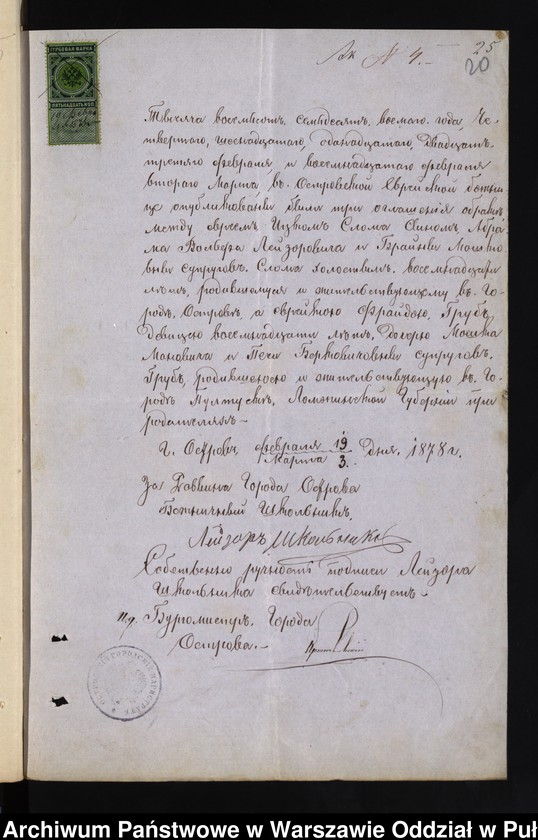 Ак N 4.
25
20
ГЕРБОВАЯ МАРКА
ПЯТЬНАДЦАТЬ КОП.
Тысяча восемьсотъ семьдесятъ восьмаго года, Че-
твертаго, шестнадцатаго, одинадцатаго, двадцать
третяго февраля и восемнадцатаго февраля
втораго Марта въ Островской Еврейской божни-
цѣ опубликованы были три оглашенія о бракѣ
между евреемъ Ицкомъ Слома сыномъ, Абра-
ма Вольфа Лейзоровича и Брайны Мошко-
вны супруговъ Слома холостымъ, восемнадцати
лѣтъ, родившимся и жительствующему въ Го-
родѣ Островѣ, а еврейкою Фрайдою, Грубъ
девицею восемнадцати лѣтъ, дочерю Мошка
Мановича и Пеши Берковичовны супруговъ
Грубъ, родившеюся и жительствующую въ Го-
родѣ Пултускъ, Ломжинской Губерніи при
родителяхъ
Г. Островъ Февраля 19 / Марта 3. Дня, 1878 г.
За Раввина Города Острова
Божничный Школьникъ
Лейзоръ Школьникъ
Собственно ручность подписи Лейзора
Школьника свидѣтельствуетъ
Пд. Бургомистръ Города
Острова.